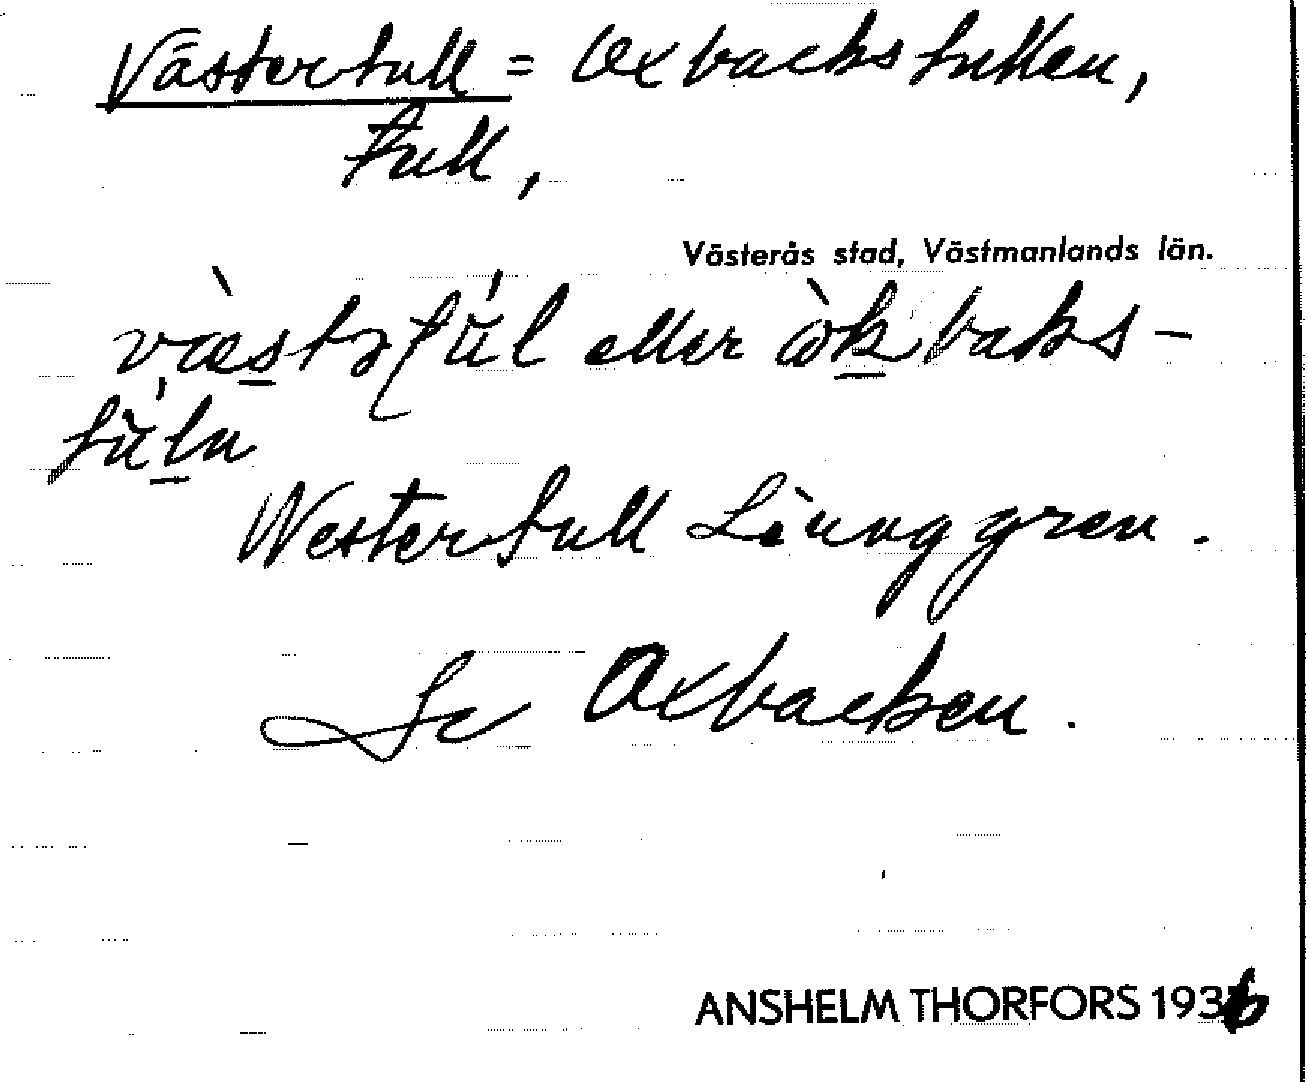 Västertull = Oxbackstullen,
tull,
Västerås stad, Västmanlands län.
eller
Westertull Liunggren.
Se Oxbacken.
ANSHELM THORFORS 1936